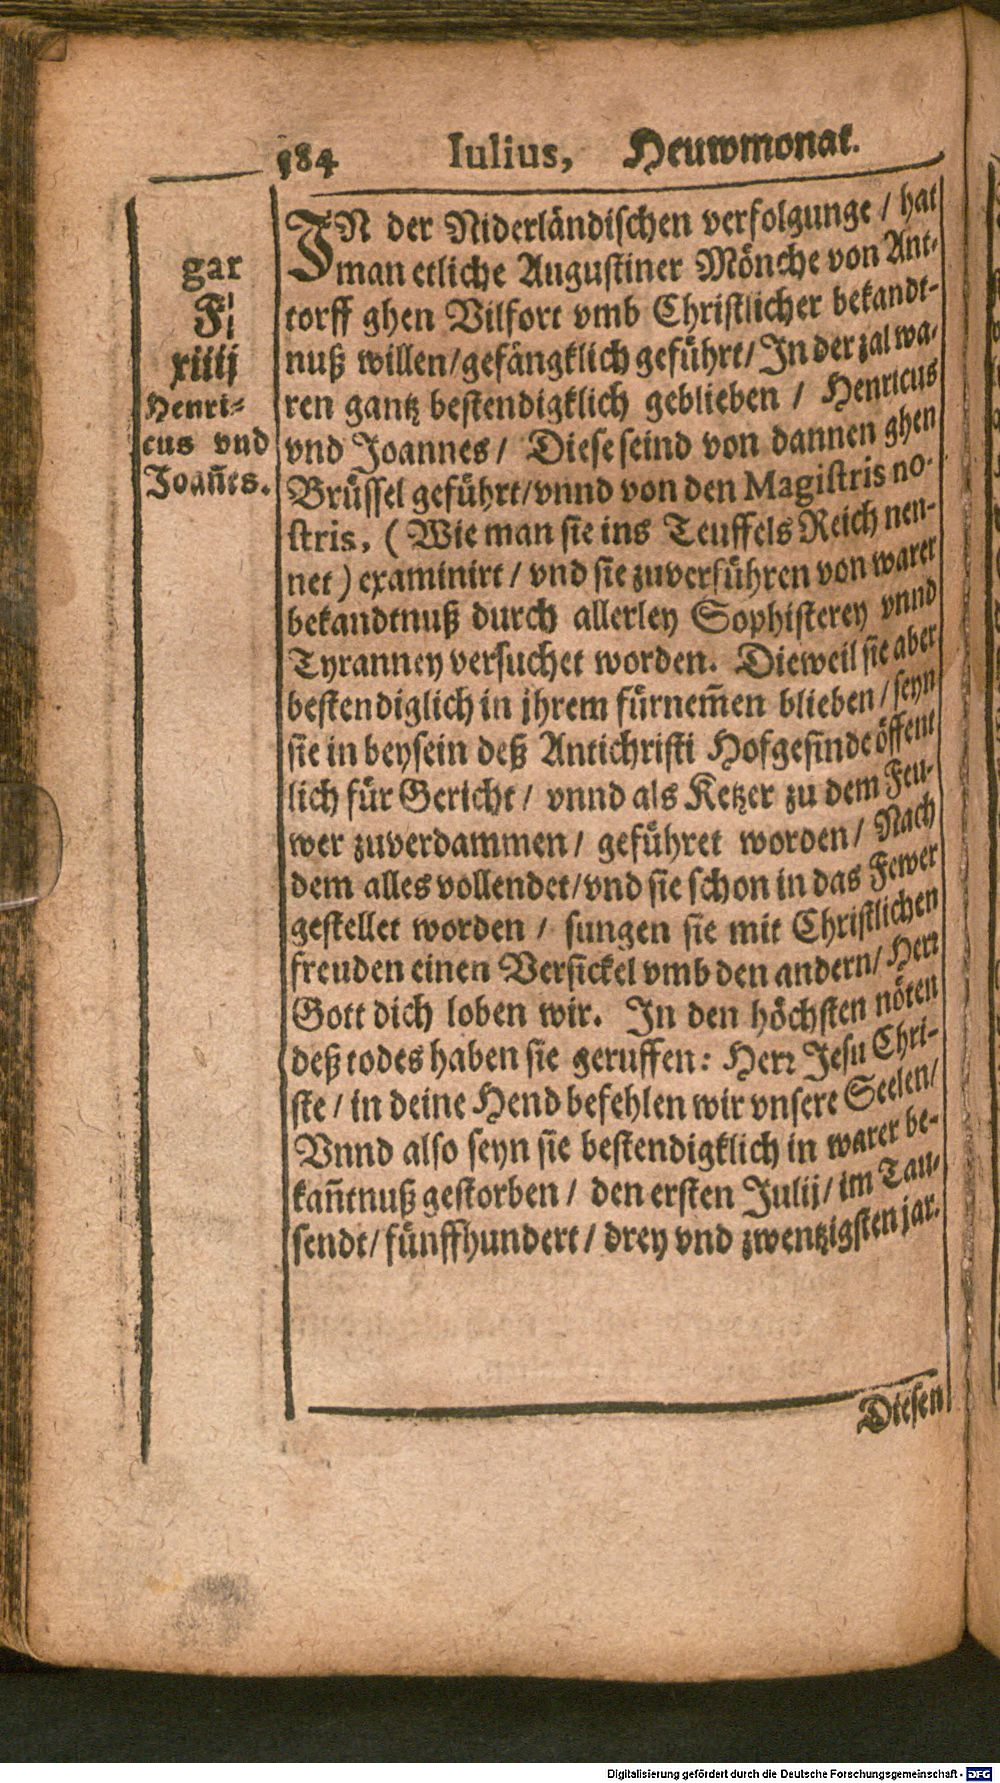 184 Iulius, Heuwmonat.
gar
F
xiiij
Henri=
cus vnd
Joan̄es.
IN der Niderländischen verfolgunge / hat
man etliche Augustiner Mönche von Ant-
torff ghen Vilfort vmb Christlicher bekandt-
nuß willen/gefängklich geführt/In der zal wa-
ren gantz bestendigklich geblieben / Henricus
vnd Joannes / Diese seind von dannen ghen
Brüssel geführt/vnnd von den Magistris no-
stris, (Wie man sie ins Teuffels Reich nen-
net) examinirt / vnd sie zuverführen von warer
bekandtnuß durch allerley Sophisterey vnnd
Tyranney versuchet worden. Dieweil sie aber
bestendiglich in jhrem fürnem̄en blieben / seyn
sie in beysein deß Antichristi Hofgesinde öffent
lich für Gericht / vnnd als Ketzer zu dem Feu-
wer zuverdammen / geführet worden / Nach
dem alles vollendet/vnd sie schon in das Fewer
gestellet worden / sungen sie mit Christlichen
freuden einen Versickel vmb den andern/ Herr
Gott dich loben wir. In den höchsten nöten
deß todes haben sie geruffen: Herr Jesu Chri-
ste / in deine Hend befehlen wir vnsere Seelen/
Vnnd also seyn sie bestendigklich in warer be-
kan̄tnuß gestorben / den ersten Julij/ im Tau-
sendt/ fünffhundert / drey vnd zwentzigsten jar.
Diesen
Digitalisierung gefördert durch die Deutsche Forschungsgemeinschaft - DFG